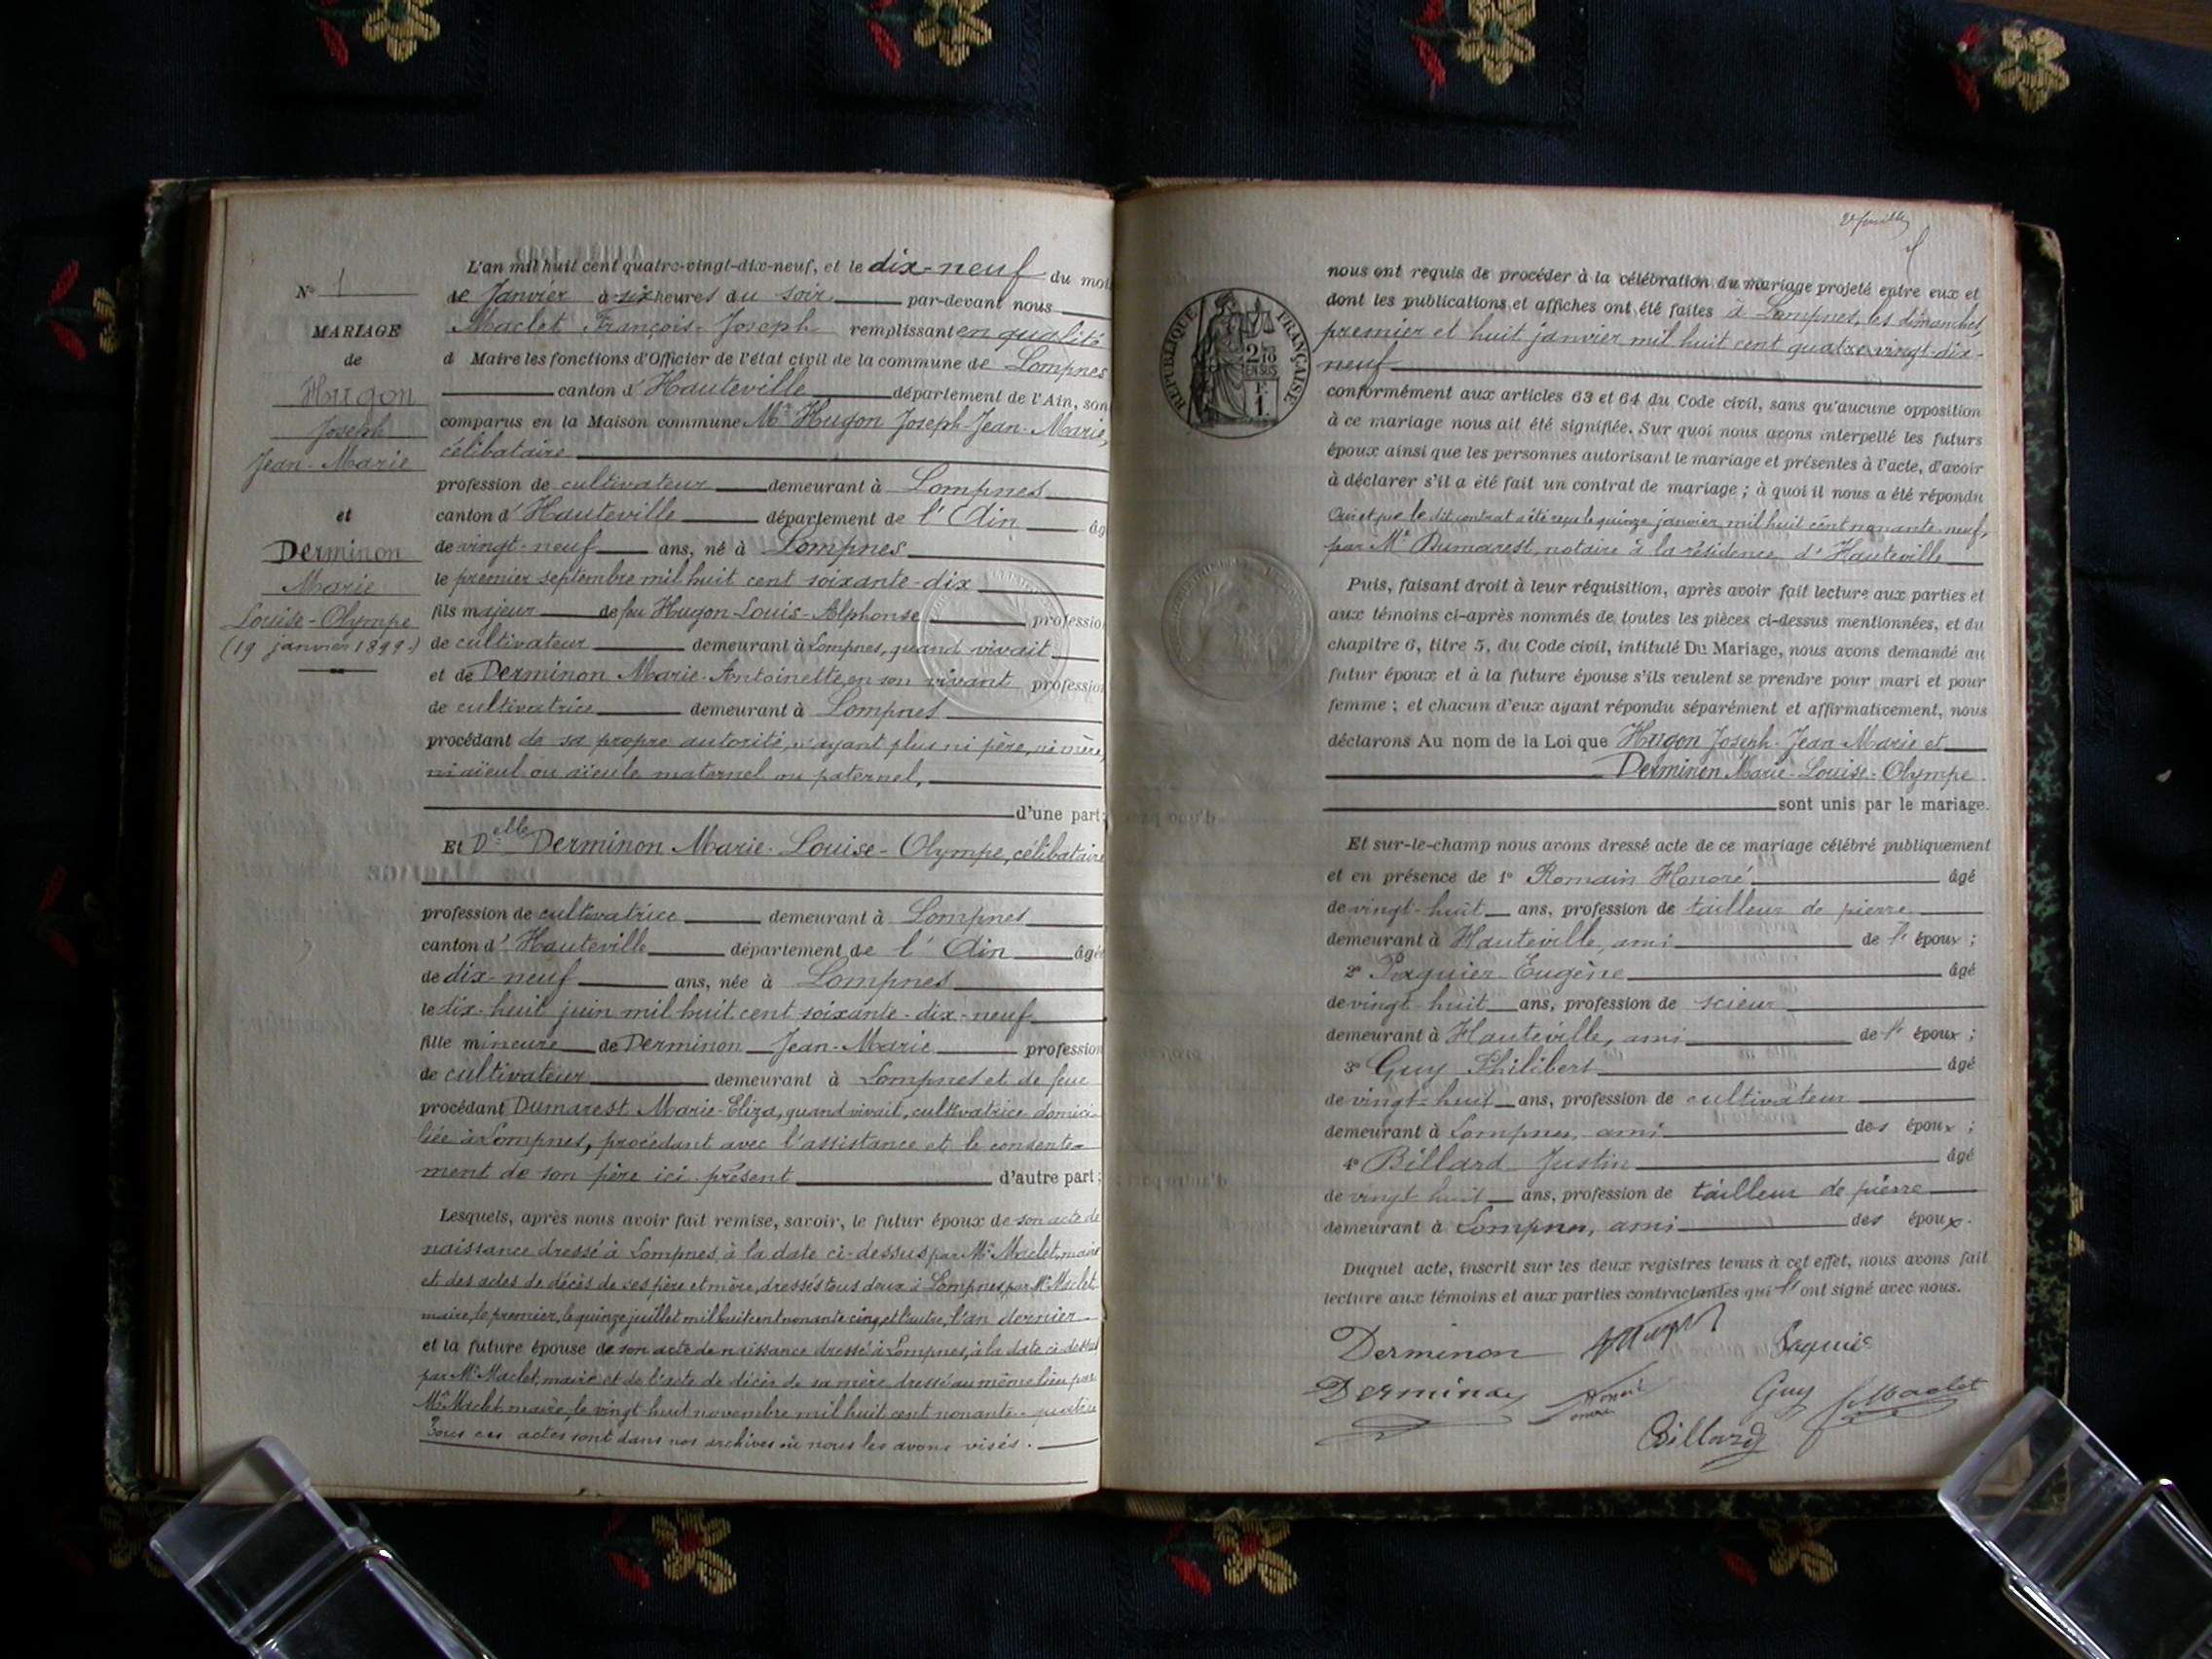 N° 1
MARIAGE
de
Hugon
Joseph
Jean-Marie
et
Derminon
Marie
Louise-Olympe
(19 janvier 1899.)
L'an mil huit cent quatre-vingt-dix-neuf, et le dix-neuf du mois
de Janvier à six heures du soir par-devant nous
Maclet François-Joseph remplissant en qualité
d Maire les fonctions d'Officier de l'état civil de la commune de Lompnes
canton d'Hauteville département de l'Ain, son
comparus en la Maison commune Mr Hugon Joseph-Jean-Marie,
célibataire
profession de cultivateur demeurant à Lompnes
canton d'Hauteville département de l'Ain âg
de vingt-neuf ans, né à Lompnes
le premier septembre mil huit cent soixante-dix
fils majeur de feu Hugon Louis-Alphonse profession
de cultivateur demeurant à Lompnes, quand vivait
et de Derminon Marie-Antoinette, en son vivant profession
de cultivatrice demeurant à Lompnes
procédant de sa propre autorité, n'ayant plus ni père, ni mère,
ni aïeul ou aïeule maternel ou paternel,
d'une part;
Et Delle Derminon Marie-Louise-Olympe, célibataire
profession de cultivatrice demeurant à Lompnes
canton d'Hauteville département de l'Ain âgée
de dix-neuf ans, née à Lompnes
le dix-huit juin mil huit cent soixante-dix-neuf
fille mineure de Derminon Jean-Marie profession
de cultivateur demeurant à Lompnes et de feue
procédant Dumarest Marie-Eliza, quand vivait, cultivatrice domici-
liée à Lompnes, procédant avec l'assistance et le consente-
ment de son père ici présent d'autre part;
Lesquels, après nous avoir fait remise, savoir, le futur époux de son acte de
naissance dressé à Lompnes, à la date ci-dessus par Mr Maclet, maire
et des actes de décès de ses père et mère, dressés tous deux à Lompnes par Mr Maclet
maire, le premier, le quinze juillet mil huit cent nonante cinq, et l'autre, l'an dernier
et la future épouse de son acte de naissance dressé à Lompnes, à la date ci-dessus
par Mr Maclet, maire et de l'acte de décès de sa mère dressé au même lieu par
Mr Maclet maire, le vingt huit novembre mil huit cent nonante-quatre
Tous ces actes sont dans nos archives où nous les avons visés.
2e feuille
RÉPUBLIQUE FRANÇAISE
nous ont requis de procéder à la célébration du mariage projeté entre eux et
dont les publications et affiches ont été faites à Lompnes, les dimanches,
premier et huit janvier mil huit cent quatre vingt-dix-
neuf
conformément aux articles 63 et 64 du Code civil, sans qu'aucune opposition
à ce mariage nous ait été signifiée. Sur quoi nous avons interpellé les futurs
époux ainsi que les personnes autorisant le mariage et présentes à l'acte, d'avoir
à déclarer s'il a été fait un contrat de mariage; à quoi il nous a été répondu
Oui et que le dit contrat a été reçu le quinze janvier mil huit cent nonante-neuf,
par Me Dumarest, notaire à la résidence d'Hauteville
Puis, faisant droit à leur réquisition, après avoir fait lecture aux parties et
aux témoins ci-après nommés de toutes les pièces ci-dessus mentionnées, et du
chapitre 6, titre 5, du Code civil, intitulé Du Mariage, nous avons demandé au
futur époux et à la future épouse s'ils veulent se prendre pour mari et pour
femme; et chacun d'eux ayant répondu séparément et affirmativement, nous
déclarons Au nom de la Loi que Hugon Joseph-Jean Marie et
Derminon Marie-Louise-Olympe
sont unis par le mariage.
Et sur-le-champ nous avons dressé acte de ce mariage célébré publiquement
et en présence de 1° Romain Honoré âgé
de vingt-huit ans, profession de tailleur de pierre
demeurant à Hauteville, ami de l' époux;
2° Paquier Eugène âgé
de vingt-huit ans, profession de scieur
demeurant à Hauteville, ami de l' époux;
3° Guy Philibert âgé
de vingt-huit ans, profession de cultivateur
demeurant à Lompnes, ami des époux;
4° Billard Justin âgé
de vingt huit ans, profession de tailleur de pierre
demeurant à Lompnes, ami des époux.
Duquel acte, inscrit sur les deux registres tenus à cet effet, nous avons fait
lecture aux témoins et aux parties contractantes qui l' ont signé avec nous.
Derminon Paquier
Derminon Guy Maclet
Billard